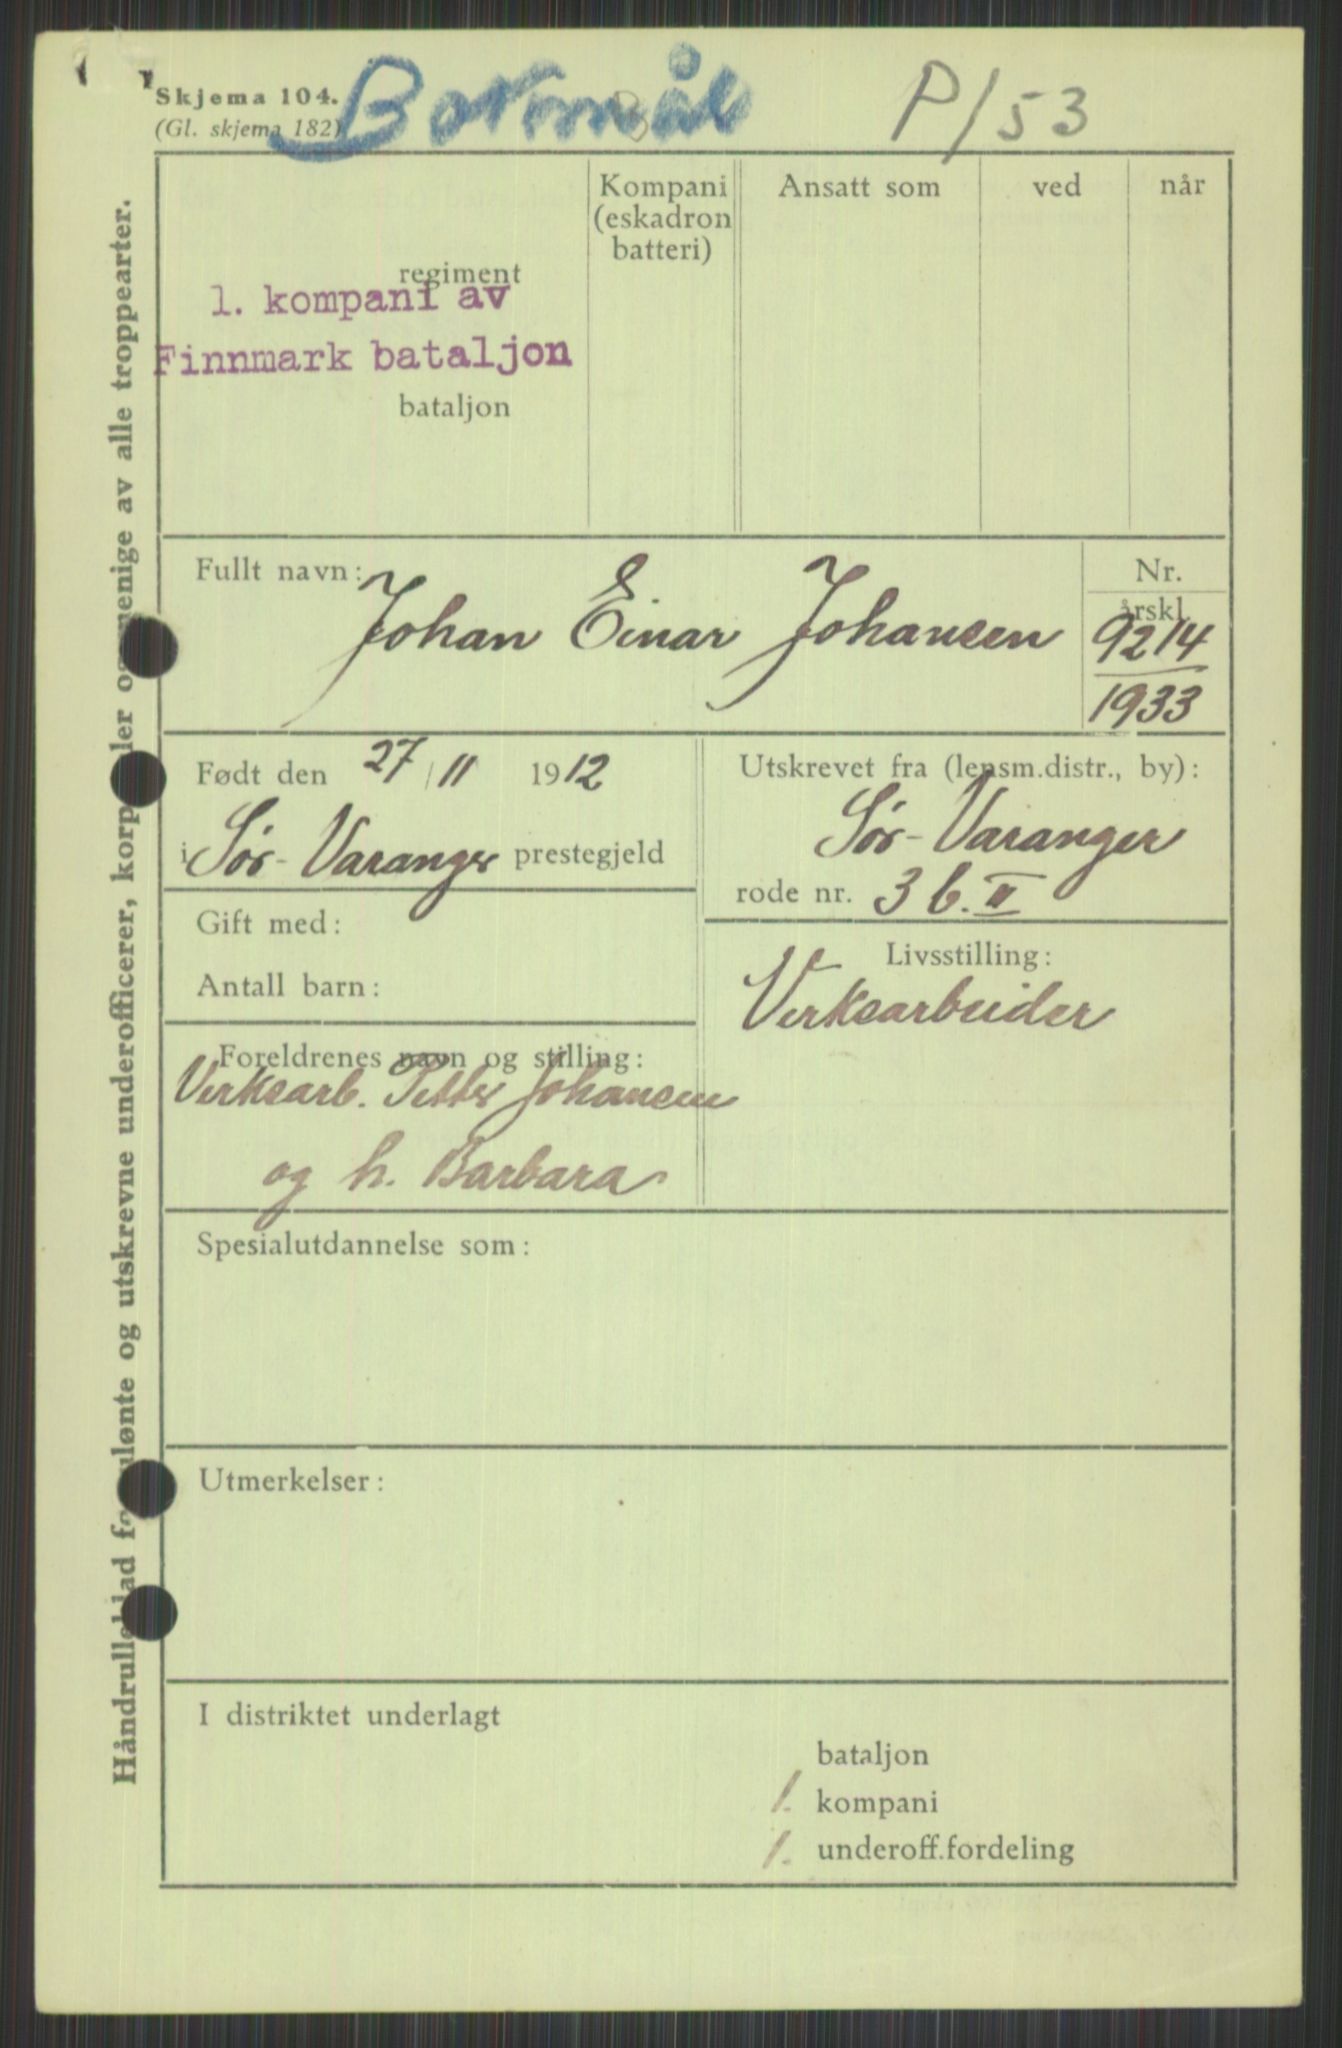 Skjema 104.
(Gl. skjema 182)
P/53
Håndrulleblad for ulønte og utskrevne underofficerer, korpraler og menige av alle troppearter.
regiment
1. kompani av
Finnmark bataljon
bataljon
Kompani
(eskadron
batteri)
Ansatt som
ved
når
Fullt navn: Johan Einar Johansen
Nr.
årskl.
9214
1933
Født den 27/11 1912
i Sør-Varanger prestegjeld
Utskrevet fra (lensm.distr., by):
Sør-Varanger
rode nr. 3 b. II
Gift med:
Antall barn:
Livsstilling:
Verksarbeider
Foreldrenes navn og stilling:
Verksarb. Petter Johansen
og h. Barbara
Spesialutdannelse som:
Utmerkelser:
I distriktet underlagt
bataljon
1. kompani
1. underoff.fordeling